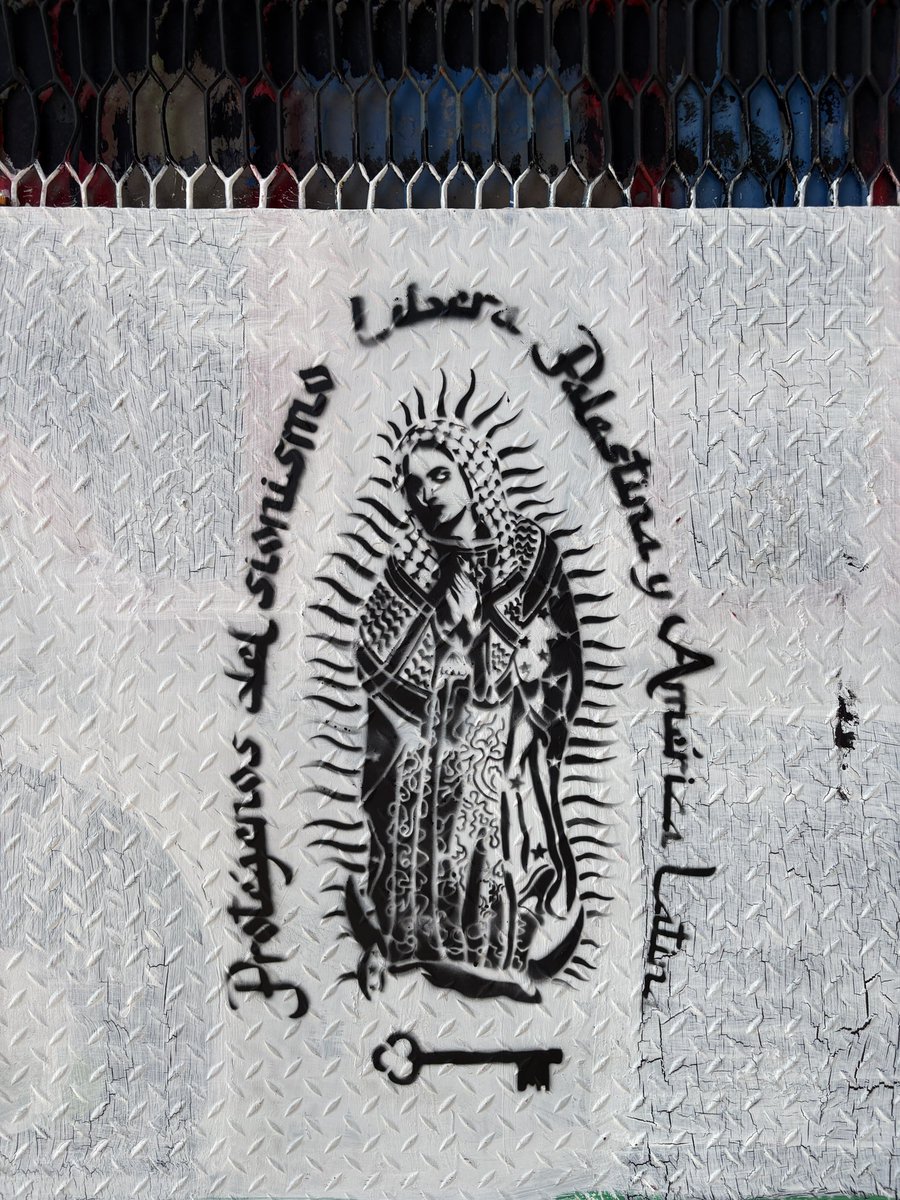 Protégenos del sionismo
Libera Palestina y América Latin